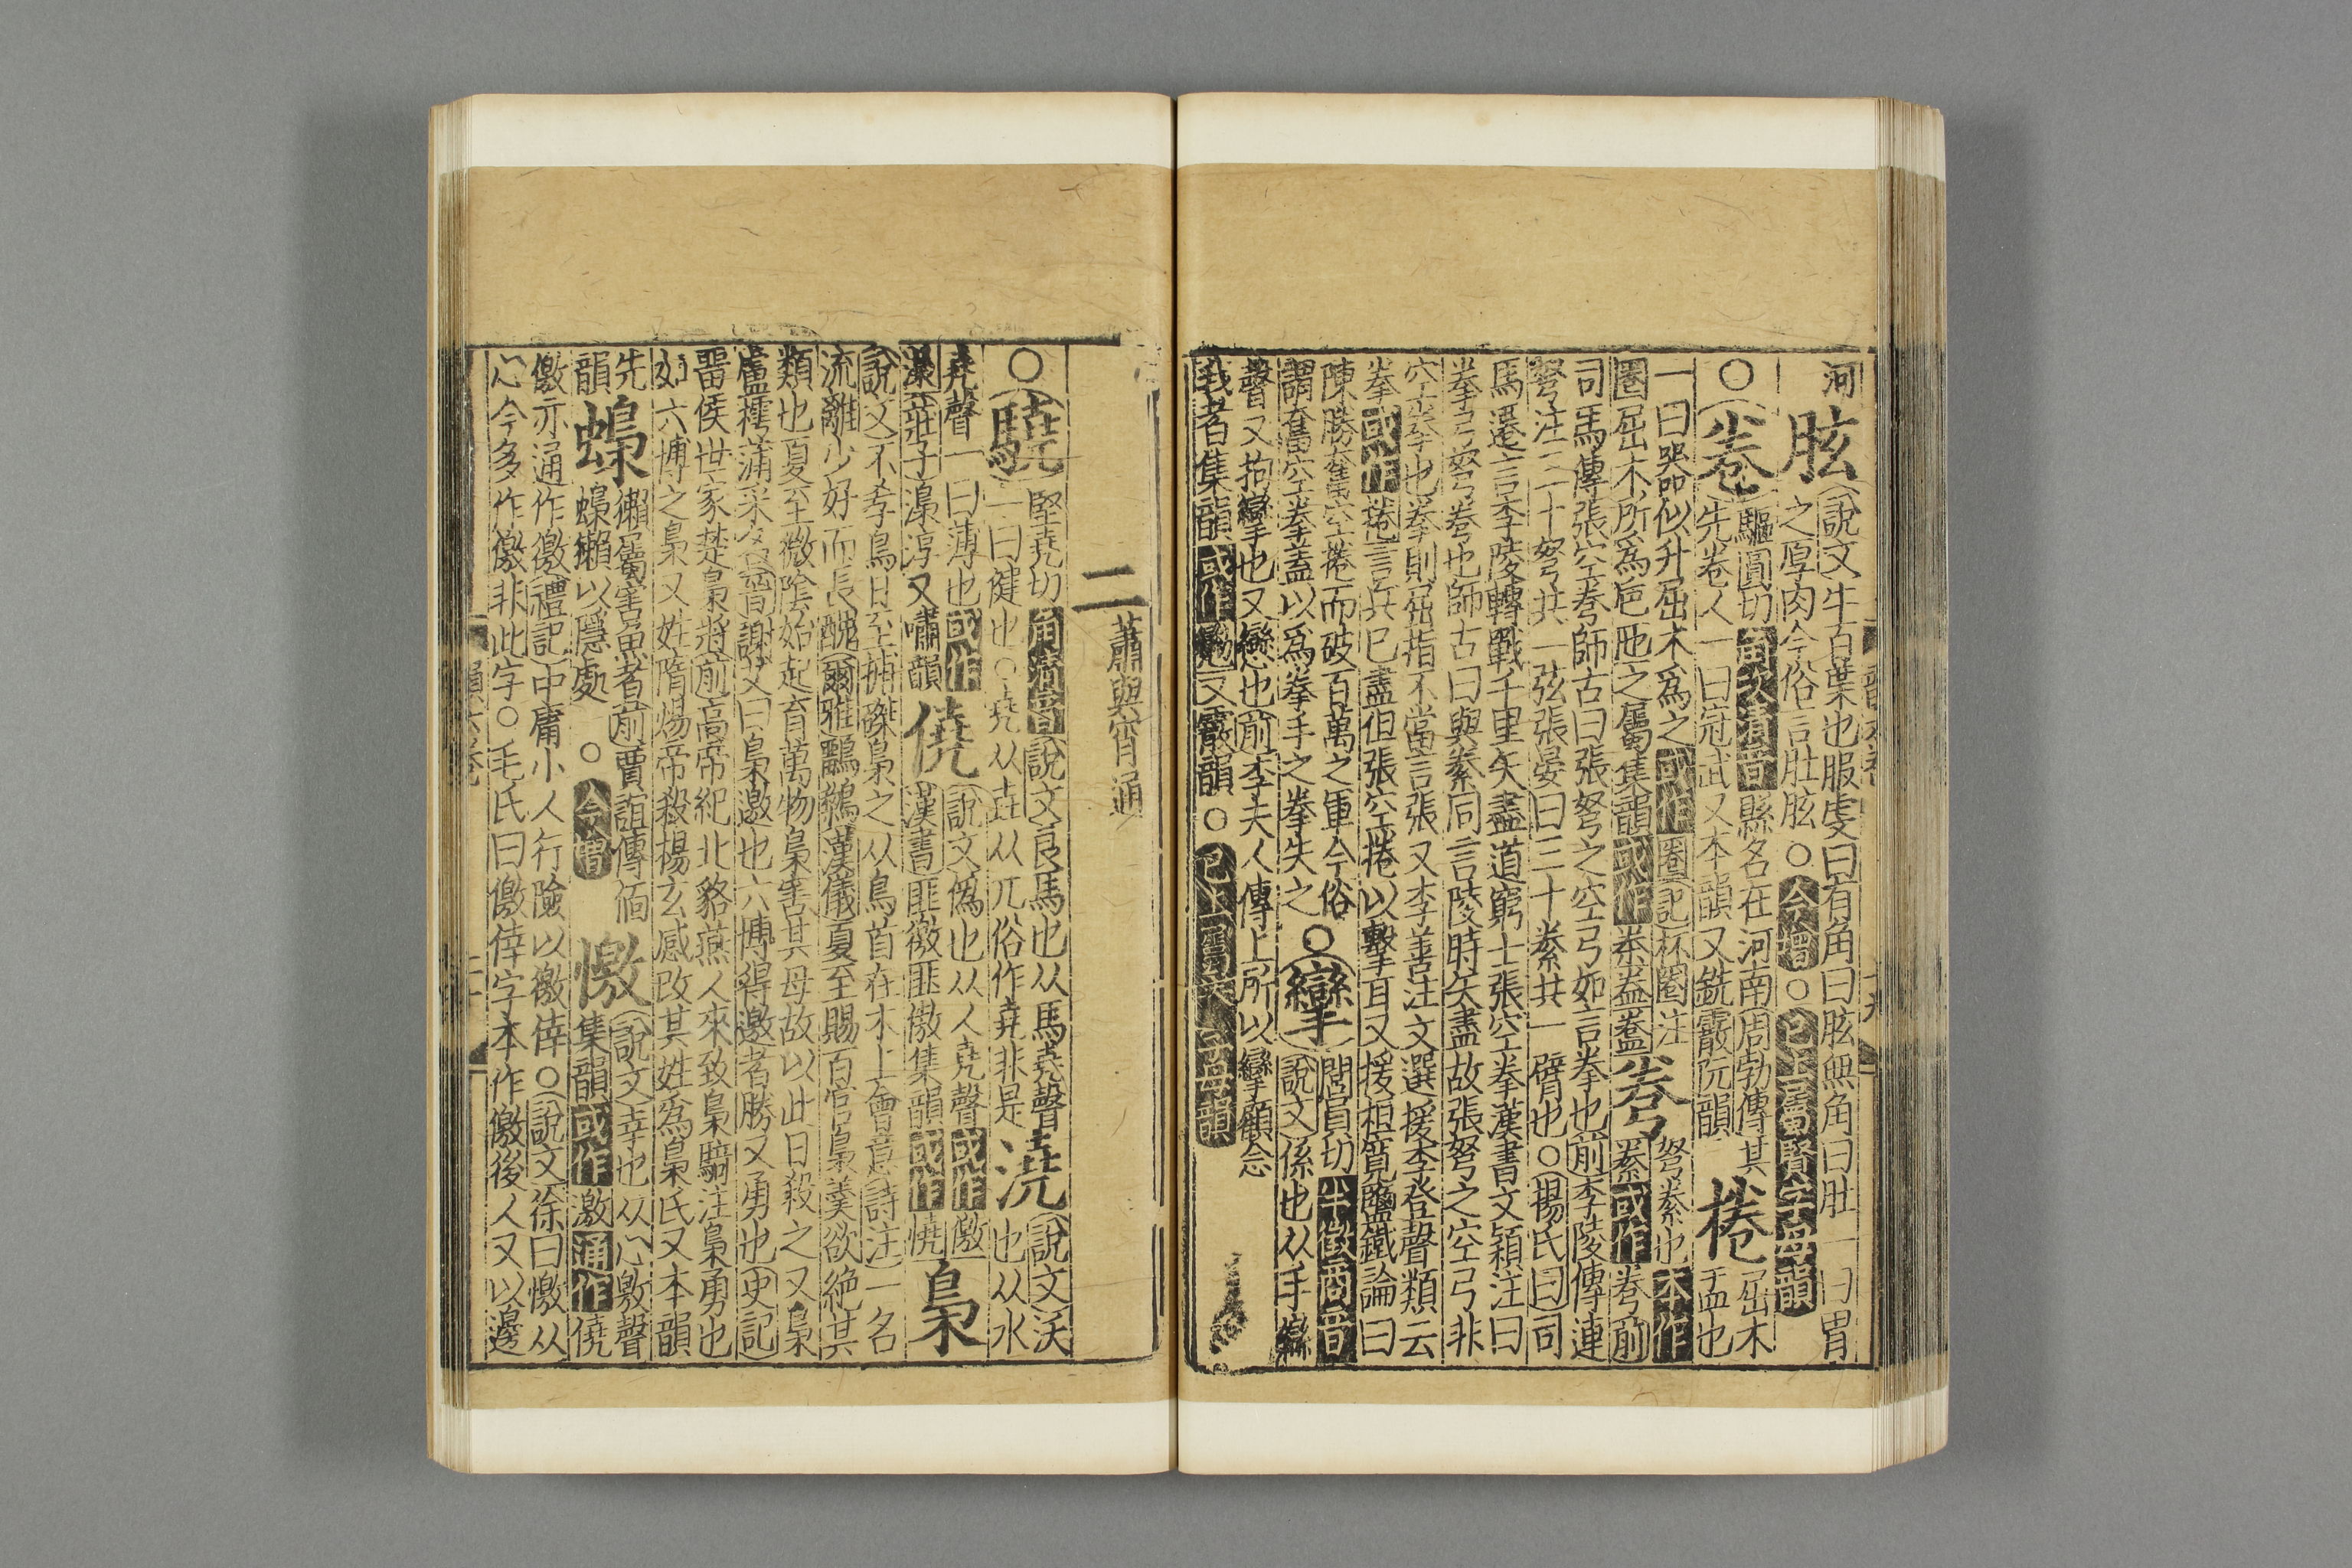 河
胘
說文牛百葉也服虔曰有角曰胘無角曰肚一曰胃
之厚肉今俗言肚胘○今增○已上屬賢字母韻
○
卷
驅圓切角次濁音縣名在河南周勃傳其
先卷人一曰冠武又本韻又銑霰阮韻
棬
屈木
盂也
一曰器似升屈木爲之或作圈記杯圈注
圈屈木所爲巵匜之屬集韻或作桊㿻
弮
弩絭也本作
絭或作弮前
司馬傳張空弮師古曰張弩之空弓如言拳也前李陵傳連
弩注三十弩共一弦張晏曰三十絭共一臂也○楊氏曰司
馬遷言李陵轉戰千里矢盡道窮士張空拳漢書文穎注曰
拳弓弩弮也師古曰與絭同言陵時矢盡故張弩之空弓非
空拳也拳則屈指不當言張又李善注文選援李登聲類云
拳或作捲言兵已盡但張空捲以擊耳又援桓寬鹽鐵論曰
陳勝奮空捲而破百萬之軍今俗
謂奮空拳蓋以爲拳手之拳失之
○攣
閭員切半徵商音
說文係也从手䜌
聲又拘攣也又戀也前李夫人傳上所以攣顧念
我者集韻或作㡩又霰韻○已上屬卷字母韻
二
蕭與宵通
○驍
堅堯切角清音說文良馬也从馬堯聲
一曰健也○堯从垚从兀俗作尭非是
澆
說文沃
也从水
堯聲一曰薄也或作
澆莊子澆淳又嘯韻
僥
說文僞也从人堯聲或作儌
漢書匪徼匪儌集韻或作憢
梟
說文不孝鳥日至捕磔梟之从鳥首在木上會意詩注一名
流離少好而長醜爾雅鸓鷅漢儀夏至賜百官梟羹欲絶其
類也夏至微陰始起育萬物梟害其母故以此日殺之又梟
盧摴蒲采名晉謝艾曰梟邀也六博得邀者勝又勇也史記
畱侯世家楚梟將前高帝紀北貉燕人來致梟騎注梟勇也
如六博之梟又姓隋煬帝殺楊玄感改其姓爲梟氏又本韻
先
韻
蟂
獺屬害魚者前賈誼傳偭
蟂獺以隱處○今增
憿
說文幸也从心敫聲
集韻或作激通作僥
儌亦通作徼禮記中庸小人行險以徼倖○說文徐曰憿从
心今多作儌非此字○毛氏曰儌倖字本作儌後人又以邊